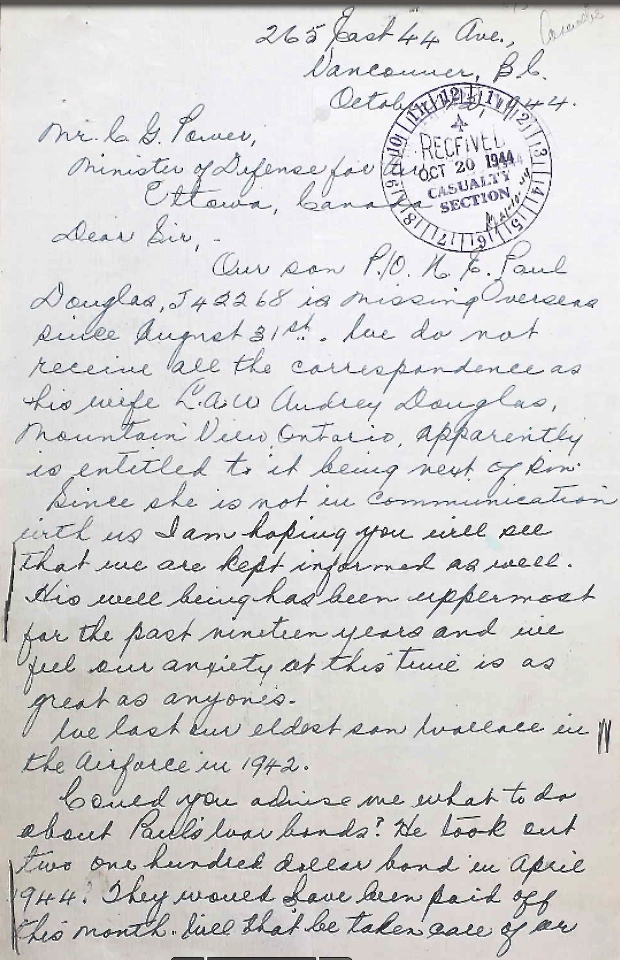 265 East 44 Ave.,
Vancouver, B.C.
October 1944.
Mr. C. G. Power,
Minister of Defense for Air
Ottowa, Canada
RECEIVED
OCT 20 1944
CASUALTY
SECTION
Dear Sir,-
Our son P/O. N. E. Paul
Douglas, J42268 is missing Overseas
since August 31st. We do not
receive all the correspondence as
his wife L.A.W Audrey Douglas,
Mountain View Ontario, apparently
is entitled to it being next of kin.
Since she is not in communication
with us I am hoping you will see
that we are kept informed as well.
His well being has been uppermost
for the past nineteen years and we
feel our anxiety at this time is as
great as anyones.
We lost our eldest son Wallace in
the Airforce in 1942.
Could you advise me what to do
about Paul's War bonds? He took out
two one hundred dollar bond in April
1944. They would have been paid off
this month. Will that be taken care of or